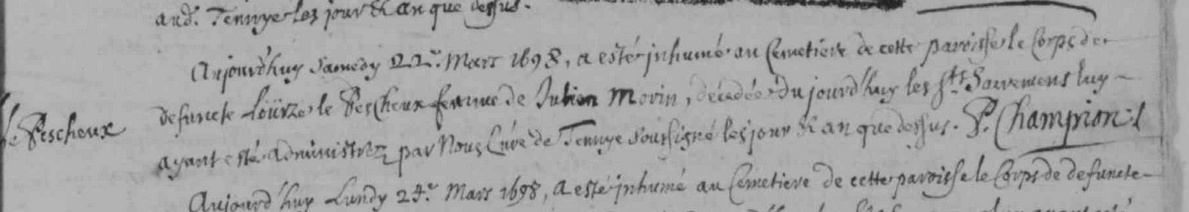 aud. Tennye les jour & an que dessus.
Aujourd'huy Samedy 22.e Mars 1698, a esté inhumé au Cemetiere de cette paroisse le Corps de
le Pescheux
defuncte Loüize le Pescheux femme de Julien Morin, décédée du jourd'huy les Sts. Sacremens luy
ayant esté administrez par Nous Curé de Tennye soussigné les jour & an que dessus. P. Champion
Aujourd'huy Lundy 24.e Mars 1698, a esté inhumé au Cemetiere de cette paroisse le Corps de defuncte